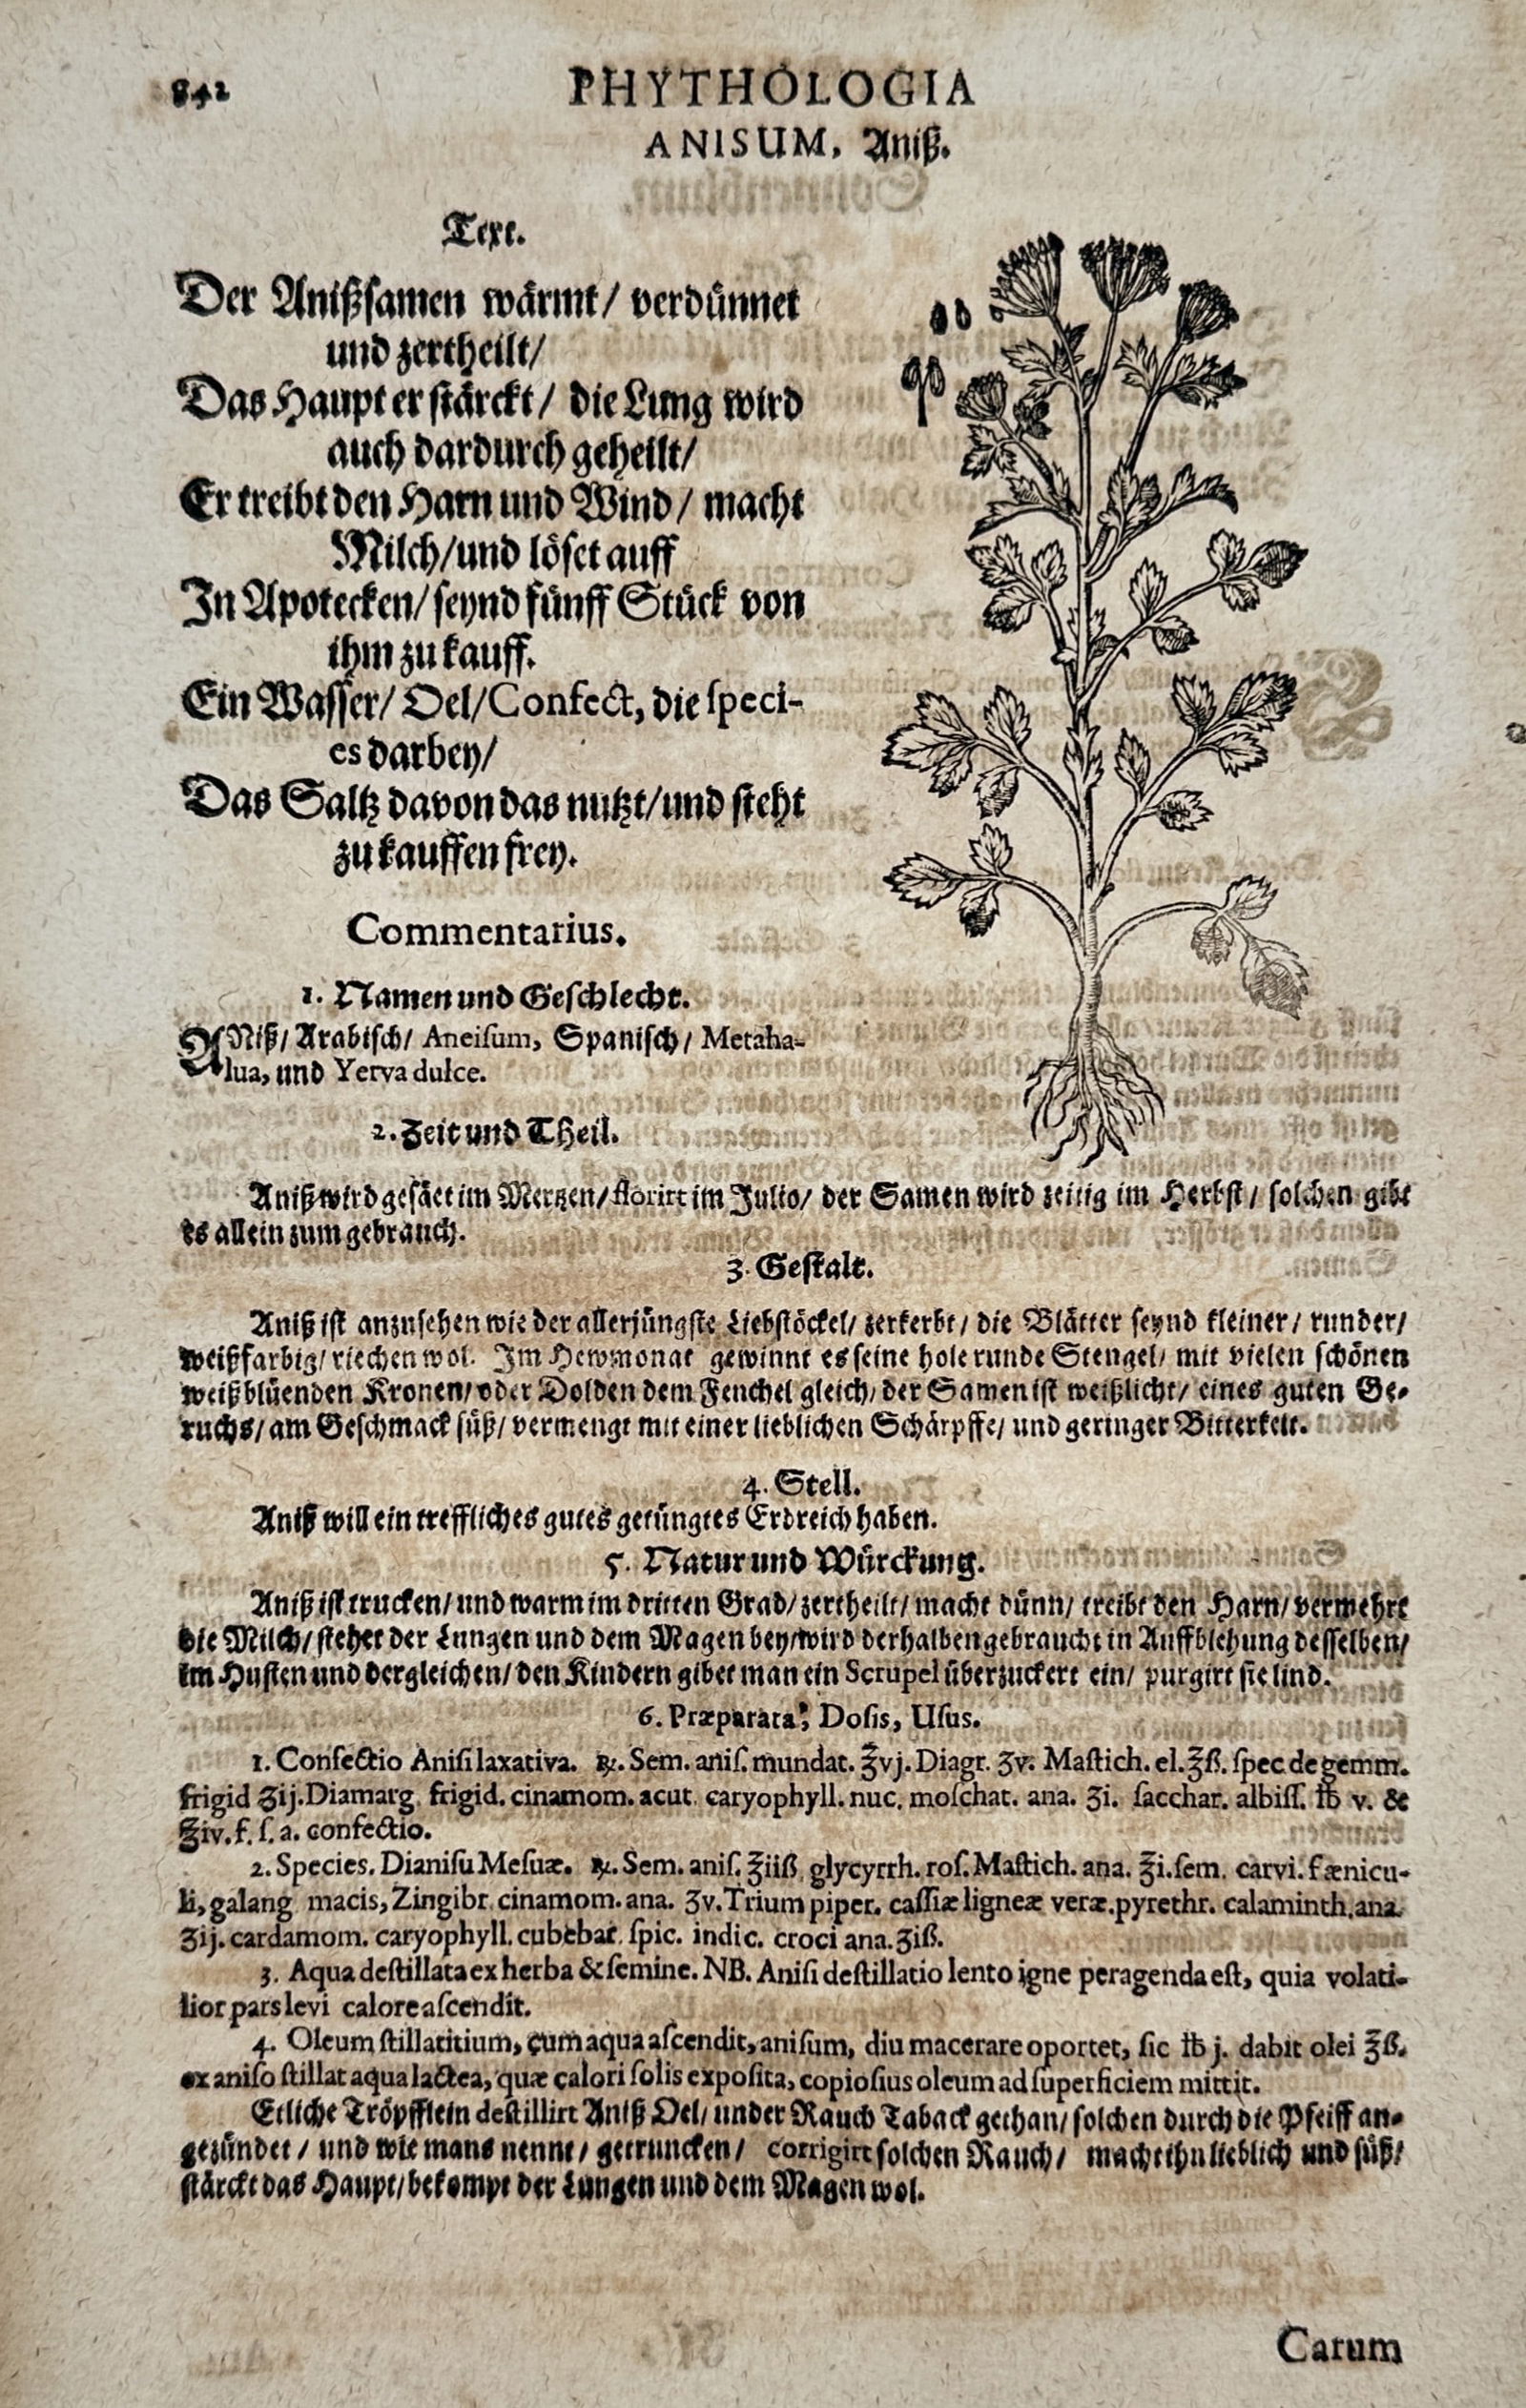 842
PHYTHOLOGIA
ANISUM, Aniß.
Text.
Der Anißsamen wärmt/ verdünnet
und zertheilt/
Das Haupt er stärckt/ die Lung wird
auch dardurch geheilt/
Er treibt den Harn und Wind/ macht
Milch/und löset auff
In Apotecken/ seynd fünff Stück von
ihm zu kauff.
Ein Wasser/ Oel/Confect, die speci-
es darbey/
Das Saltz davon das nutzt/und steht
zu kauffen frey.
Commentarius.
1. Namen und Geschlecht.
ANiß/ Arabisch/ Aneiſum, Spanisch/ Metaha-
lua, und Yerva dulce.
2. Zeit und Theil.
Aniß wird gesäet im Mertzen/ florirt im Julio/ der Samen wird zeitig im Herbst/ solchen gibt
es allein zum gebrauch.
3. Gestalt.
Aniß ist anzusehen wie der allerjüngste Liebstöckel/ zerkerbt/ die Blätter seynd kleiner/ runder/
weißfarbig/ riechen wol. Im Hewmonat gewinnt es seine hole runde Stengel/ mit vielen schönen
weißblüenden Kronen/ oder Dolden dem Fenchel gleich/ der Samen ist weißlicht/ eines guten Ge-
ruchs/ am Geschmack süß/ vermengt mit einer lieblichen Schärpffe/ und geringer Bitterkeit.
4. Stell.
Aniß will ein treffliches gutes getüngtes Erdreich haben.
5. Natur und Würckung.
Aniß ist trucken/ und warm im dritten Grad/ zertheilt/ macht dünn/ treibt den Harn/ vermehrt
die Milch/ stehet der Lungen und dem Magen bey/wird derhalben gebraucht in Auffblehung desselben/
im Husten und dergleichen/ den Kindern gibet man ein Scrupel überzuckert ein/ purgirt sie lind.
6. Præparata, Doſis, Uſus.
1. Confectio Aniſi laxativa. ℞. Sem. aniſ. mundat. ℥vj. Diagr. ʒv. Maſtich. el. ℥ß. ſpec. de gemm.
frigid ʒij. Diamarg. frigid. cinamom. acut. caryophyll. nuc. moſchat. ana. ʒi. ſacchar. albiſſ. ℔ v. &
℥iv. f. ſ. a. confectio.
2. Species. Dianiſu Meſuæ. ℞. Sem. aniſ. ℥iiß. glycyrrh. roſ. Maſtich. ana. ℥i. ſem. carvi. fænicu-
li, galang. macis, Zingibr. cinamom. ana. ʒv. Trium piper. caſſiæ ligneæ veræ. pyrethr. calaminth. ana.
ʒij. cardamom. caryophyll. cubebar. ſpic. indic. croci ana. ʒiß.
3. Aqua deſtillata ex herba & ſemine. NB. Aniſi deſtillatio lento igne peragenda eſt, quia volati-
lior pars levi calore aſcendit.
4. Oleum ſtillatitium, cum aqua aſcendit, aniſum, diu macerare oportet, ſic ℔ j. dabit olei ℥ß.
ex aniſo ſtillat aqua lactea, quæ calori ſolis expoſita, copioſius oleum ad ſuperficiem mittit.
Etliche Tröpfflein destillirt Aniß Oel/ under Rauch Taback gethan/ solchen durch die Pfeiff an-
gezündet/ und wie mans nennt/ getruncken/ corrigirt solchen Rauch/ macht ihn lieblich und süß/
stärckt das Haupt/ bekompt der Lungen und dem Magen wol.
Carum